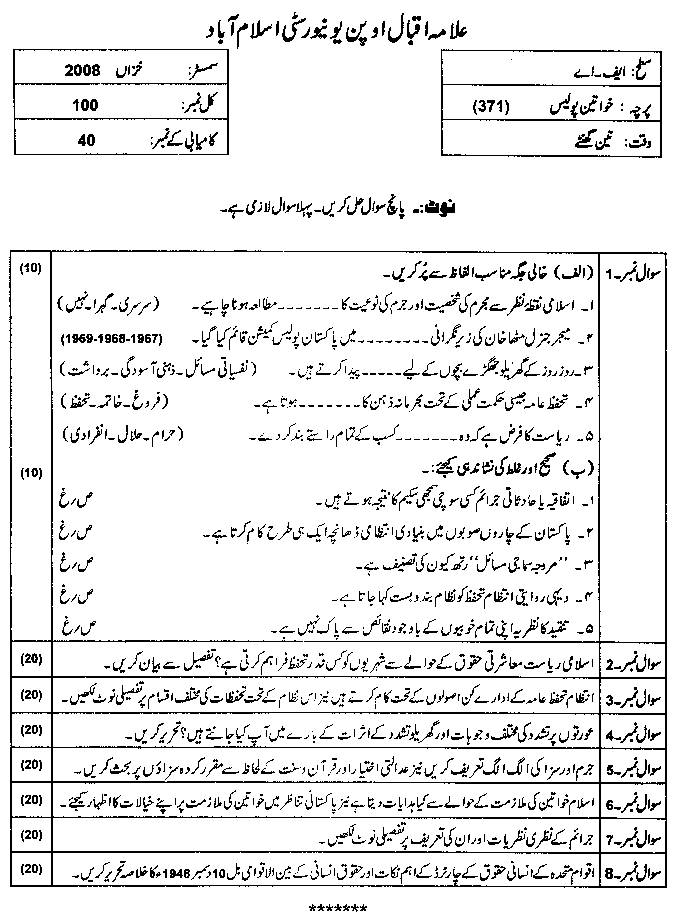 علامہ اقبال اوپن یونیورسٹی اسلام آباد
سطح: ایف۔اے
پرچہ: خواتین پولیس (371)
وقت: تین گھنٹے
سمسٹر: خزاں 2008
کل نمبر: 100
کامیابی کے نمبر: 40
نوٹ:۔ پانچ سوال حل کریں۔ پہلا سوال لازمی ہے۔
سوال نمبر۔1 (الف) خالی جگہ مناسب الفاظ سے پُر کریں۔ (10)
۱۔ اسلامی نقطۂ نظر سے مجرم کی شخصیت اور جرم کی نوعیت کا ۔۔۔۔۔۔۔ مطالعہ ہونا چاہیے۔ (سرسری۔ گہرا۔ نہیں)
۲۔ میجر جنرل مٹھا خان کی زیر نگرانی ۔۔۔۔۔۔۔۔ میں پاکستان پولیس کمیشن قائم کیا گیا۔ (1967-1968-1969)
۳۔ روز روز کے گھریلو جھگڑے بچوں کے لیے ۔۔۔۔۔ پیدا کرتے ہیں۔ (نفسیاتی مسائل۔ ذہنی آسودگی۔ برداشت)
۴۔ تحفظ عامہ جیسی حکمت عملی کے تحت مجرمانہ ذہن کا ۔۔۔۔۔۔۔ ہوتا ہے۔ (فروغ۔ خاتمہ۔ تحفظ)
۵۔ ریاست کا فرض ہے کہ وہ ۔۔۔۔۔۔۔ کسب کے تمام راستے بند کر دے۔ (حرام۔ حلال۔ انفرادی)
(ب) صحیح اور غلط کی نشاندہی کیجئے:۔ (10)
۱۔ اتفاقیہ یا حادثاتی جرائم کسی سوچی سمجھی سکیم کا نتیجہ ہوتے ہیں۔ ص/غ
۲۔ پاکستان کے چاروں صوبوں میں بنیادی انتظامی ڈھانچہ ایک ہی طرح کام کرتا ہے۔ ص/غ
۳۔ "مروجہ سماجی مسائل" رتھ کیون کی تصنیف ہے۔ ص/غ
۴۔ دیہی روایتی انتظام تحفظ کو نظام بندوبست کہا جاتا ہے۔ ص/غ
۵۔ تنقید کا نظریہ اپنی تمام خوبیوں کے باوجود نقائص سے پاک نہیں ہے۔ ص/غ
سوال نمبر۔2 اسلامی ریاست معاشرتی حقوق کے حوالے سے شہریوں کو کس قدر تحفظ فراہم کرتی ہے؟ تفصیل سے بیان کریں۔ (20)
سوال نمبر۔3 انتظام تحفظ عامہ کے ادارے کن اصولوں کے تحت کام کرتے ہیں نیز اس نظام کے تحت تحفظات کی مختلف اقسام پر تفصیلی نوٹ لکھیں۔ (20)
سوال نمبر۔4 عورتوں پر تشدد کی مختلف وجوہات اور گھریلو تشدد کے اثرات کے بارے میں آپ کیا جانتے ہیں؟ تحریر کریں۔ (20)
سوال نمبر۔5 جرم اور سزا کی الگ الگ تعریف کریں نیز عدالتی اختیار اور قرآن و سنت کے لحاظ سے مقرر کردہ سزاؤں پر بحث کریں۔ (20)
سوال نمبر۔6 اسلام خواتین کی ملازمت کے حوالے سے کیا ہدایات دیتا ہے نیز پاکستانی تناظر میں خواتین کی ملازمت پر اپنے خیالات کا اظہار کیجئے۔ (20)
سوال نمبر۔7 جرائم کے نظری نظریات اور ان کی تعریف پر تفصیلی نوٹ لکھیں۔ (20)
سوال نمبر۔8 اقوام متحدہ کے انسانی حقوق کے چارٹرڈ کے اہم نکات اور حقوق انسانی کے بین الاقوامی بل 10 دسمبر 1948ء کا خلاصہ تحریر کریں۔ (20)
*******